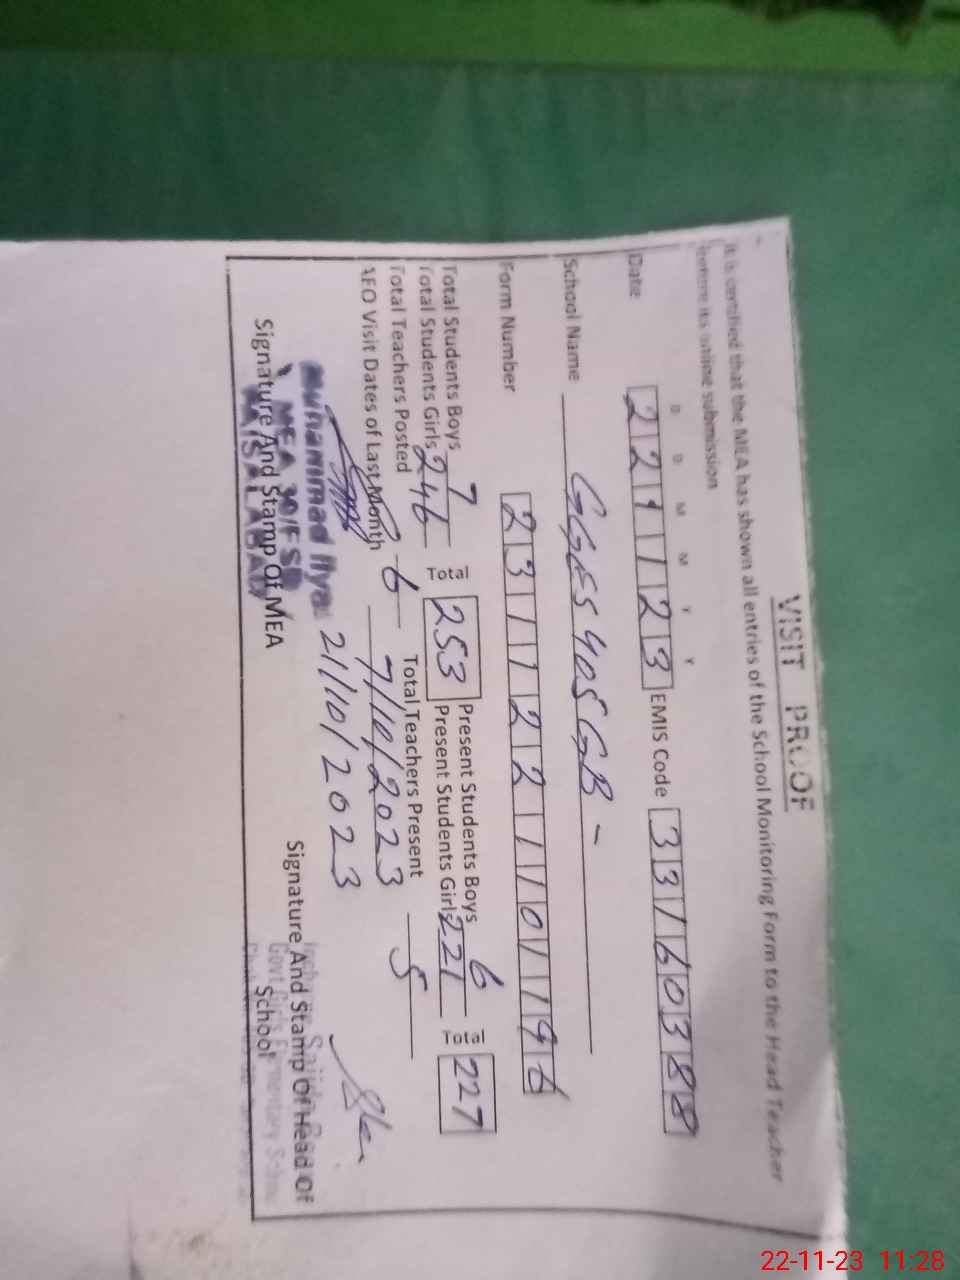 VISIT PROOF
It is certified that the MEA has shown all entries of the School Monitoring Form to the Head Teacher
before its online submission
D D M M Y Y
Date 221123 EMIS Code 33160388
School Name GGES 405 GB -
Form Number 2311221101196
Total Students Boys 7 Total 253 Present Students Boys 6 Total 227
Total Students Girls 246 Present Students Girls 221
Total Teachers Posted 6 Total Teachers Present 5
AEO Visit Dates of Last Month 7/10/2023
21/10/2023
Muhammad Ilyas
MEA 30/FSD
FAISALABAD
Signature And Stamp Of MEA
Signature And Stamp Of Head Of
School
Govt Girls Elementary School
22-11-23 11:28